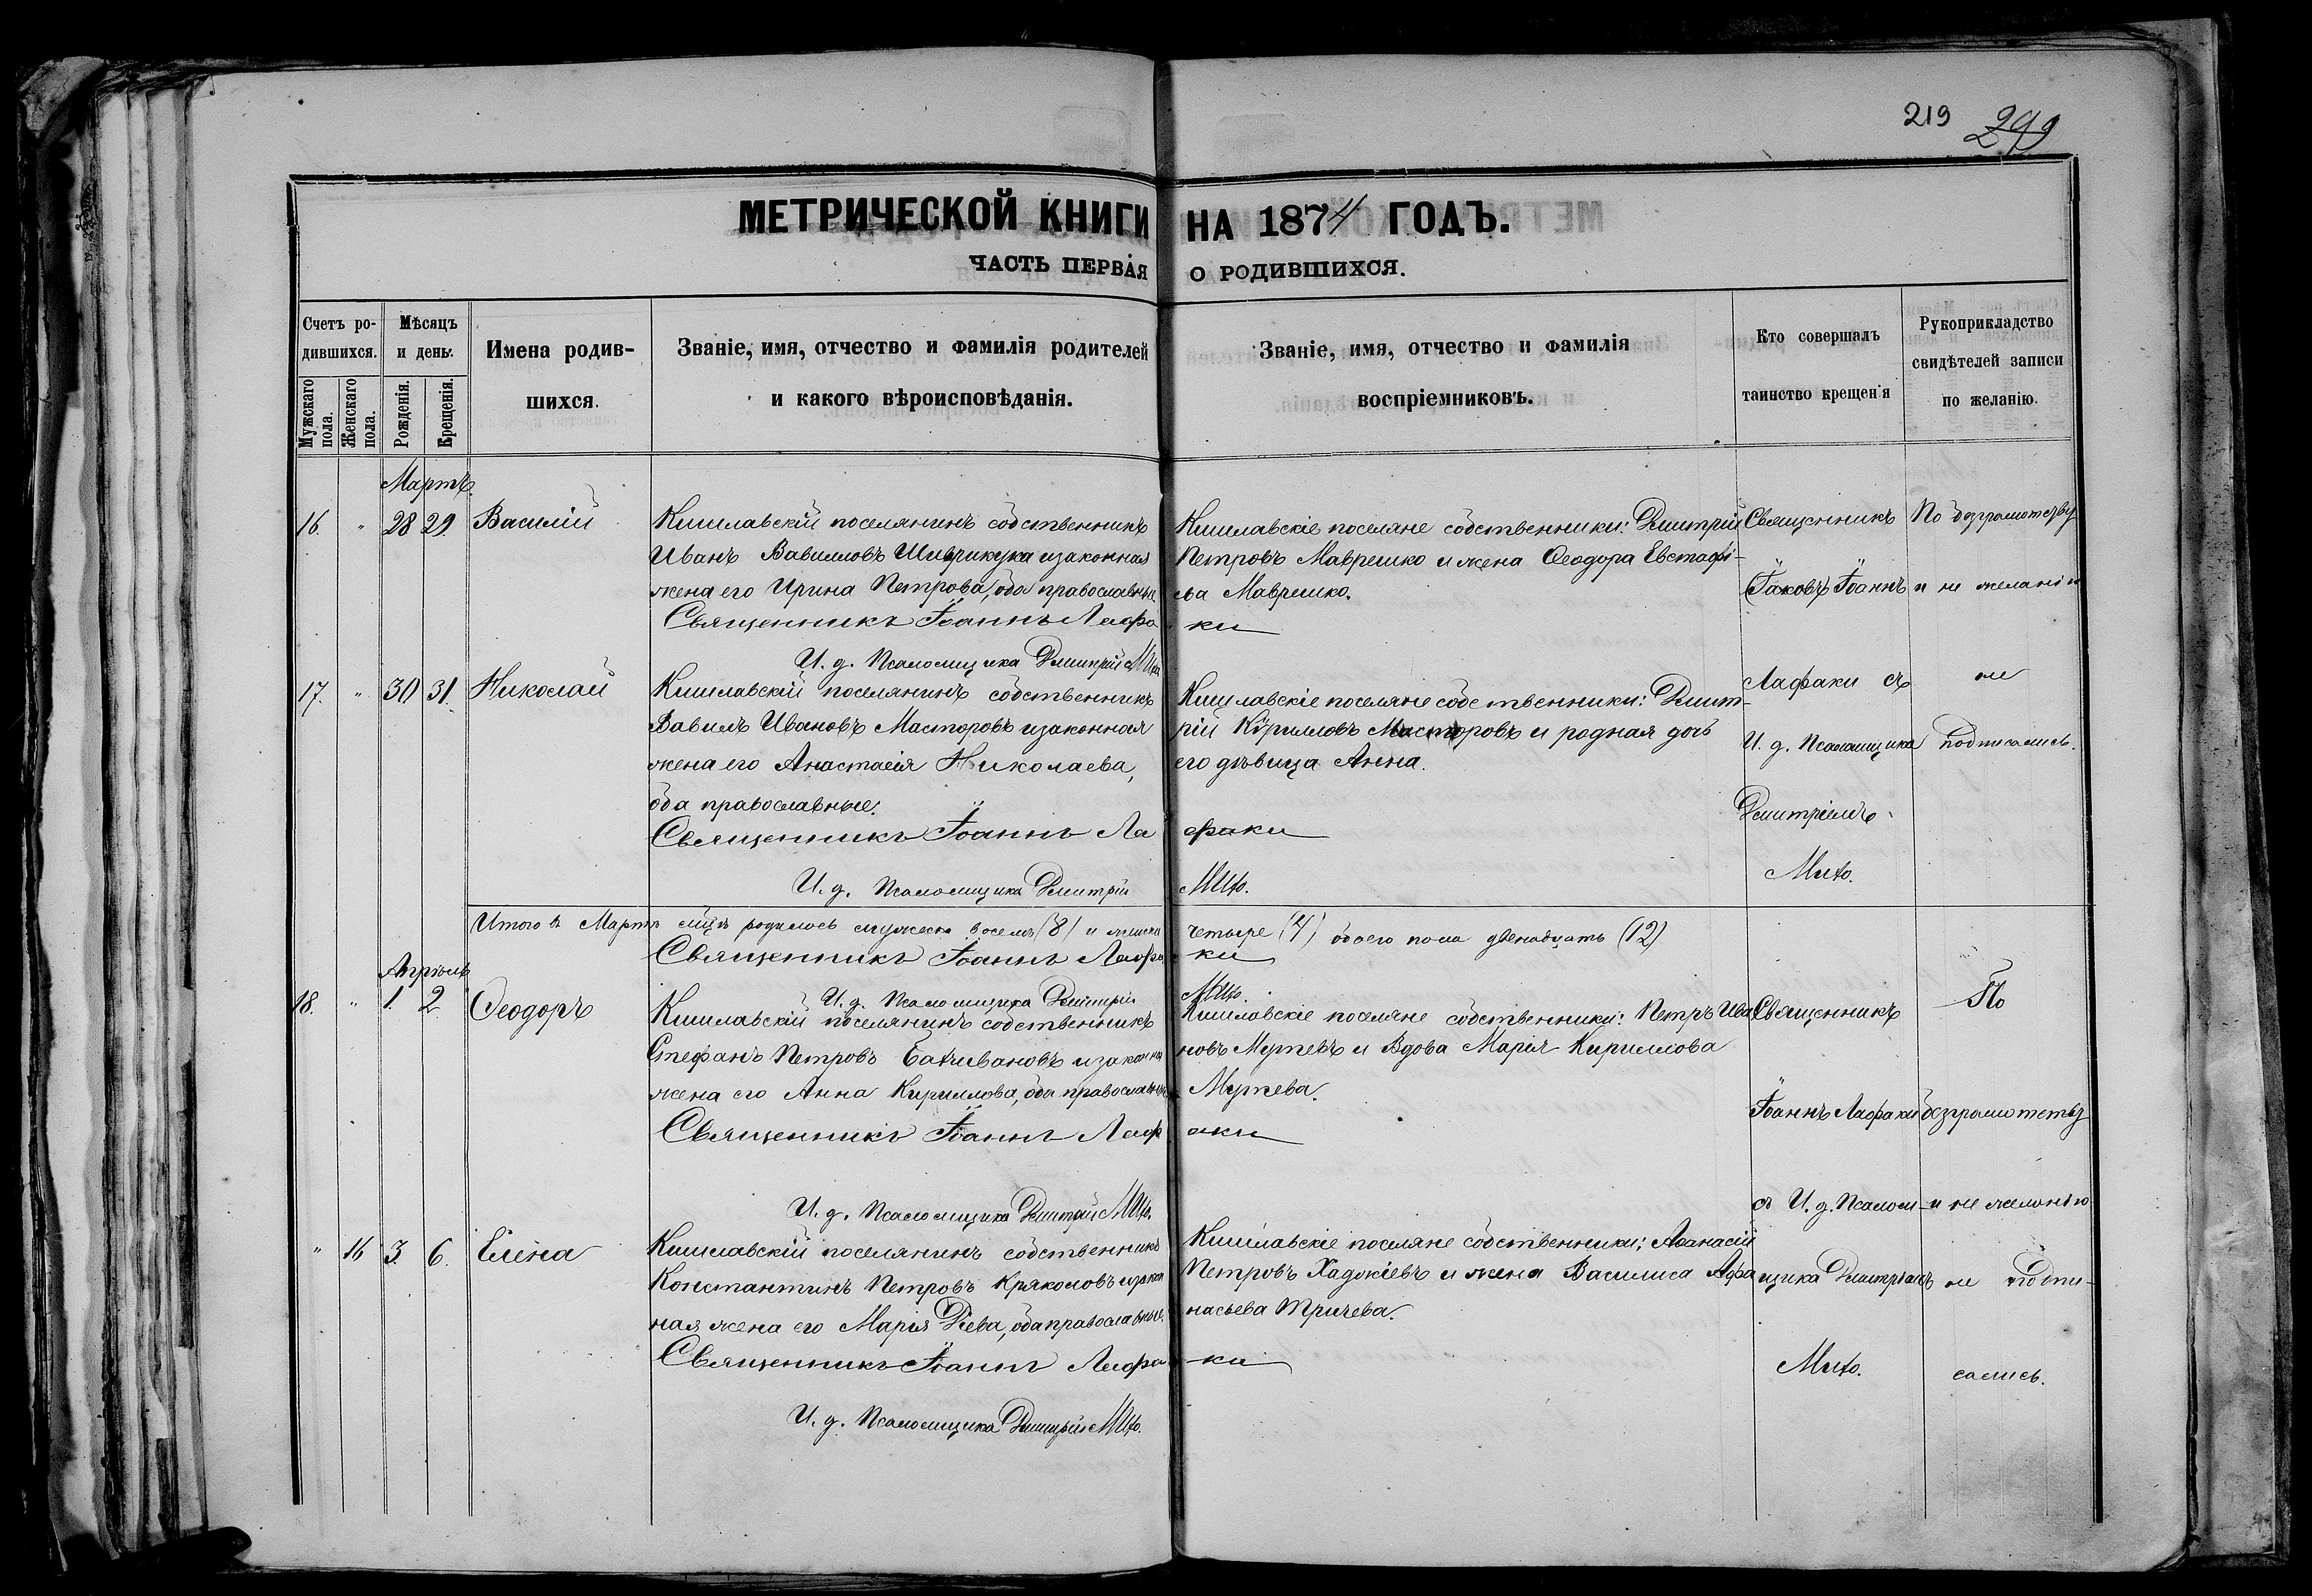 219 299
МЕТРИЧЕСКОЙ КНИГИ НА 1874 ГОДЪ.
ЧАСТЬ ПЕРВАЯ О РОДИВШИХСЯ.
Счетъ ро-
дившихся.
Мужскаго пола.
Женскаго пола.
Мѣсяцъ
и день.
Рожденія.
Крещенія.
Имена родив-
шихся.
Званіе, имя, отчество и фамилія родителей
и какого вѣроисповѣданія.
Званіе, имя, отчество и фамилія
воспріемниковъ.
Кто совершалъ
таинство крещенія
Рукоприкладство
свидѣтелей записи
по желанію.
Мартъ
16. " 28 29. Василій
Кишлавскій поселянинъ собственникъ
Иванъ Вавиловъ изаконная
жена его Ирина Петрова, оба православные
Священникъ Іоаннъ Лафаки
И. д. Псаломщика Дмитрій
Кишлавскіе поселяне собственники: Дмитрій
Петровъ Маврешко и жена Ѳеодора Евстафі-
ева Маврешко.
17. " 30 31. Николай
Кишлавскій поселянинъ собственникъ
Вавилъ Ивановъ Масторовъ изаконная
жена его Анастасія Николаева,
оба православные.
Священникъ Іоаннъ Лафаки
И. д. Псаломщика Дмитрій
Кишлавскіе поселяне собственники: Дмит-
рій Кѵрилловъ Масторовъ и родная дочь
его дѣвица Анна.
Священникъ
Іаковъ Іоаннъ
Лафаки съ
И. д. Псаломщика
Дмитріемъ
По безграмотству
и не желанію
не
подписались.
Итого въ Мартѣ мцѣ родилось мужеска восемь (8) и женска четыре (4) обоего пола двенадцать (12)
Священникъ Іоаннъ Лафаки
И. д. Псаломщика Дмитрій
Апрѣль
18. " 1. 2. Ѳеодоръ
Кишлавскій поселянинъ собственникъ
Стефанъ Петровъ и законная
жена его Анна Кириллова, оба православные
Священникъ Іоаннъ Лафаки
И. д. Псаломщика Дмитрій
Кишлавскіе поселяне собственники: Петръ Ива
новъ и Вдова Марія Кириллова
" 16 3. 6. Елена
Кишлавскій поселянинъ собственникъ
Константинъ Петровъ Кряколовъ изакон
ная жена его Марія Діева, оба православные.
Священникъ Іоаннъ Лафаки
И. д. Псаломщика Дмитрій
Кишлавскіе поселяне собственники: Аѳанасій
Петровъ Хадокіевъ и жена Василиса Афа
насьева Тричева.
Священникъ
Іоаннъ Лафаки
съ И. д. Псалом-
щика Дмитріемъ
По
безграмотству
и не желанію
не подпи-
сались.